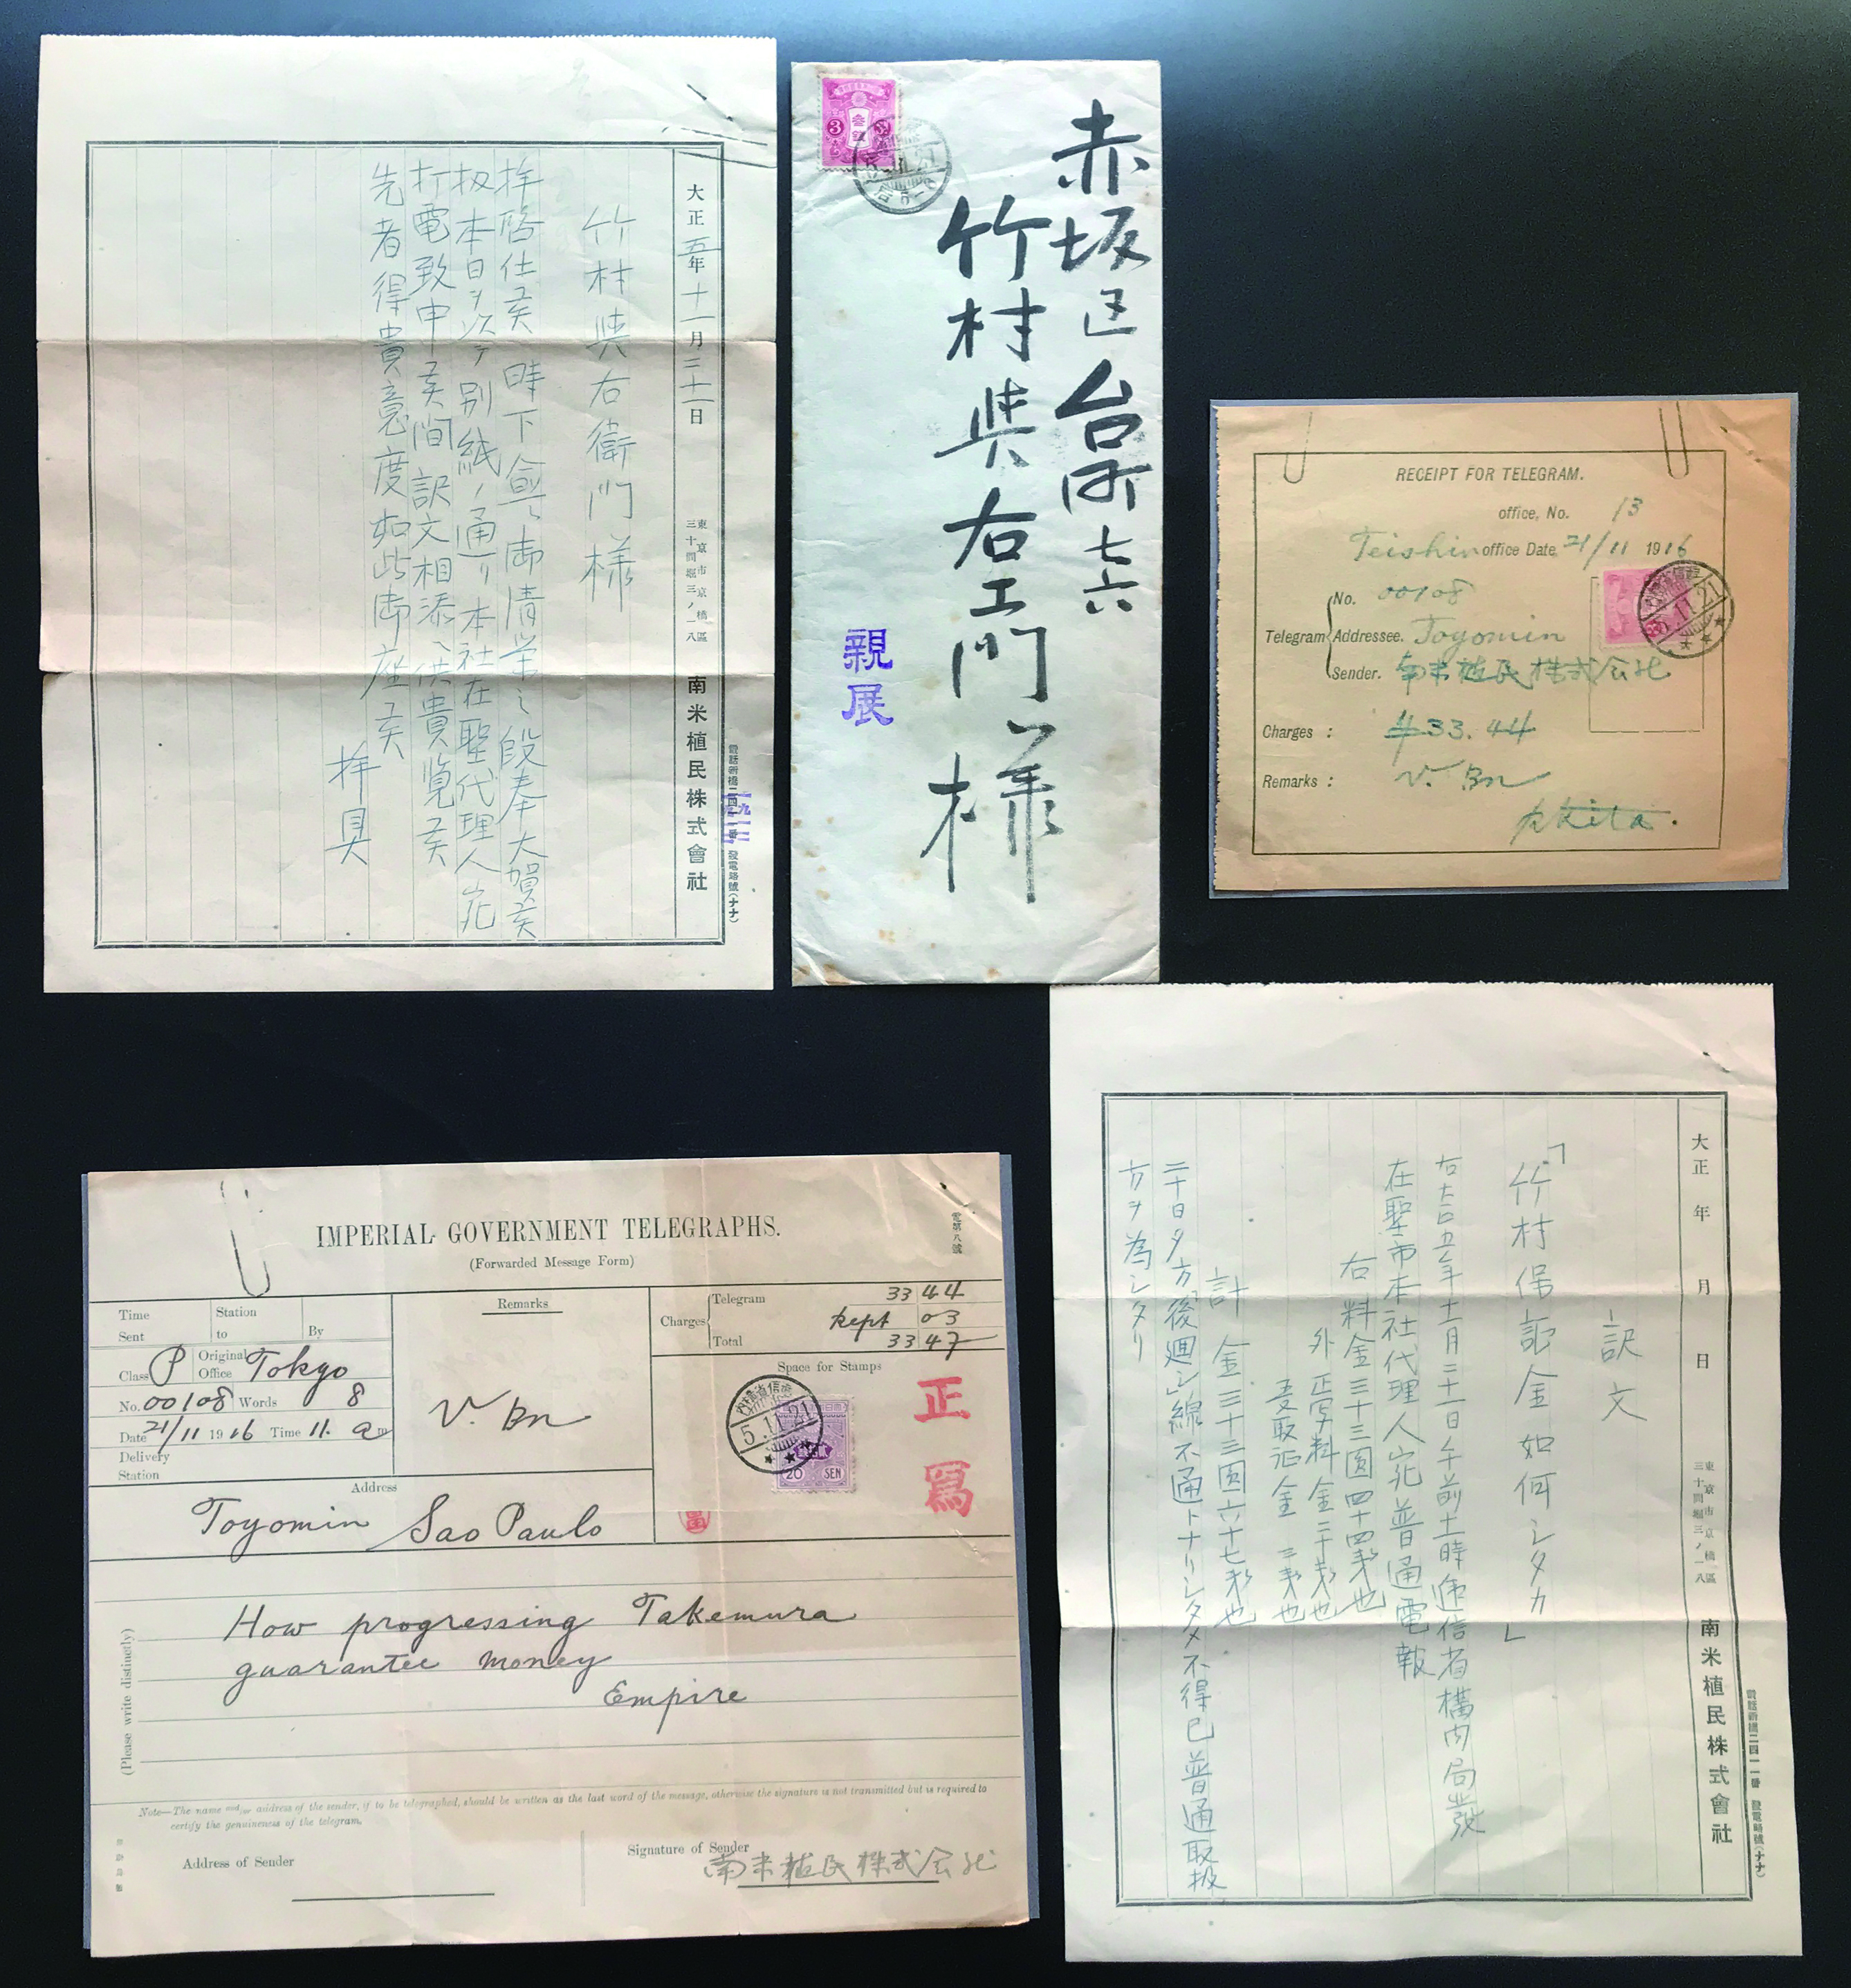 大正五年十一月二十一日
東京市京橋區
三十間堀三ノ一八
南米植民株式會社
電話新橋二四一一番 發電略號(ナナ)
竹村與右衛門様
拝啓仕候時下愈々御清栄之段奉大賀候
扨本日ヲ以テ別紙ノ通リ本社在聖代理人宛
打電致申候間訳文相添ヘ供貴覧候
先者得貴意度如此御座候
拝具
3
赤坂区台町七六
竹村與右エ門様
親展
RECEIPT FOR TELEGRAM.
office, No. 13
Teishin office Date 21/11 1916
Telegram
No. 00108
Addressee. Toyomin
Sender. 南米植民株式会社
Charges : ¥33.44
Remarks : V. Bn
Akita.
5.11.21
IMPERIAL GOVERNMENT TELEGRAPHS.
(Forwarded Message Form)
電第八號
Time Sent
Station to
By
Remarks
Charges
Telegram 33 44
kept 03
Total 33 47
Class P
Original Office Tokyo
No. 00108 Words 8
Date 21/11 1916 Time 11. am
Delivery Station
V. Bn
Space for Stamps
5.11.21
20 SEN
正寫
Address
Toyomin Sao Paulo
(Please write distinctly)
How progressing Takemura
guarantee money
Empire
Note—The name and/or address of the sender, if to be telegraphed, should be written as the last word of the message, otherwise the signature is not transmitted but is required to
certify the genuineness of the telegram.
Address of Sender
Signature of Sender
南米植民株式会社
大正 年 月 日
東京市京橋區
三十間堀三ノ一八
南米植民株式會社
電話新橋二四一一番 發電略號(ナナ)
訳文
「竹村保証金如何シタカ」
右大正五年十一月二十一日午前十一時逓信省構内局発
在聖市本社代理人宛普通電報
右料金三十三圓四十四銭也
外正写料金二十銭也
受取証金三銭也
計金三十三圓六十七銭也
二十日夕方「後廻シ」線不通トナリシタメ不得已普通取扱
方ヲ為シタリ